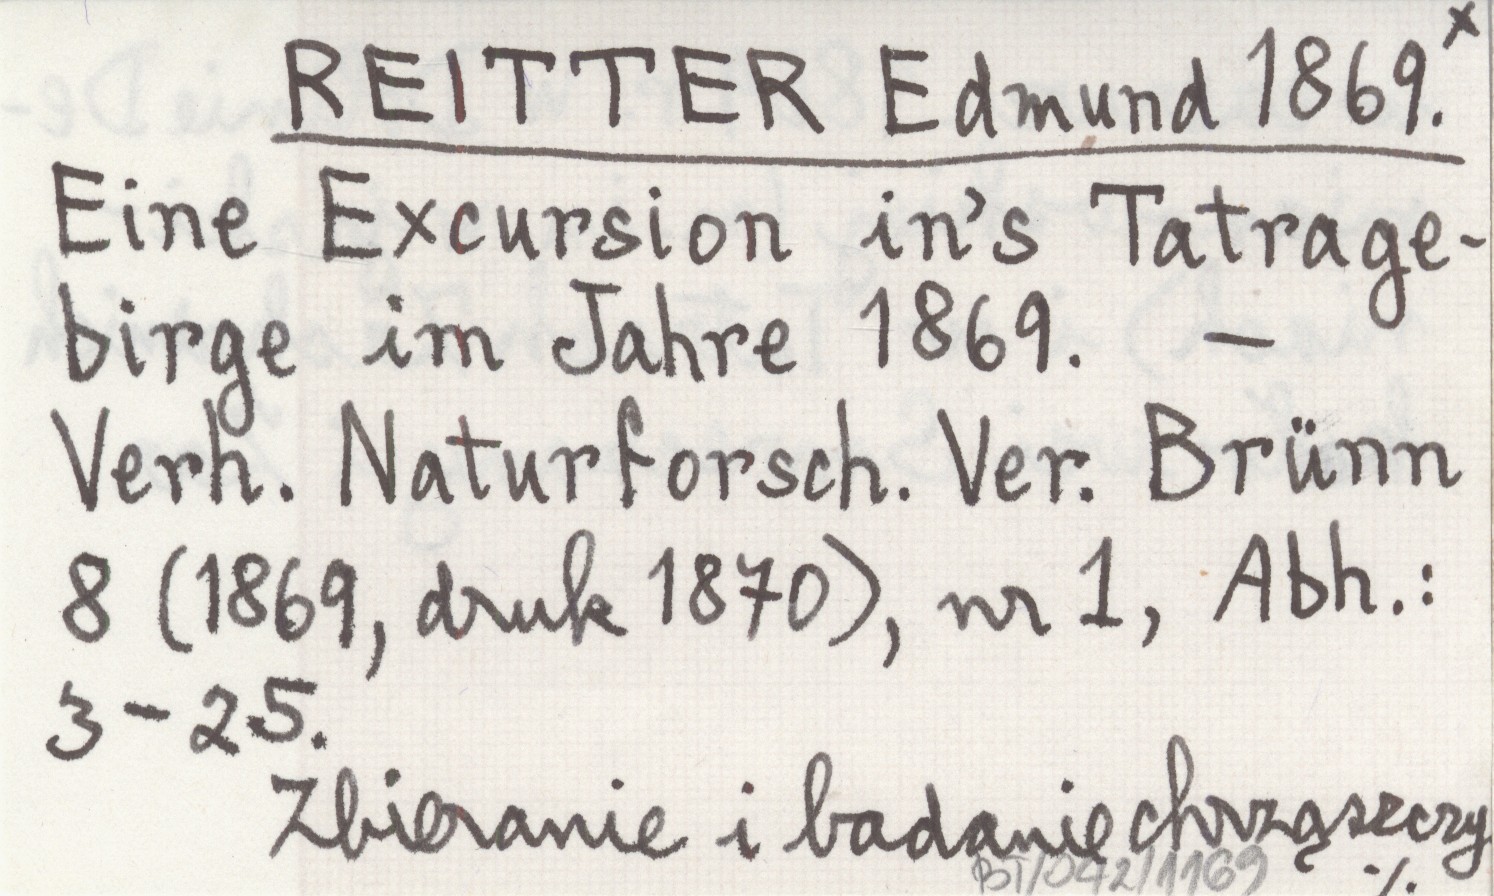 REITTER Edmund 1869.x
Eine Excursion in's Tatrage-
birge im Jahre 1869. —
Verh. Naturforsch. Ver. Brünn
8 (1869, druk 1870), nr 1, Abh.:
3-25.
Zbieranie i badanie chrząszczy
BT/042/1169 ·/.